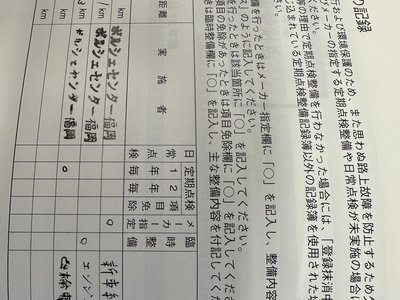 の記録
行および環境保護のため、また思わぬ路上故障を防止するため
びメーカーの指定する定期点検整備や日常点検が未実施の場合に
ください。
等の理由で定期点検整備を行わなかった場合には、「登録抹消中
じ込まれている定期点検整備記録簿以外の記録簿を使用された場
備を行ったときはメーカー指定欄に「○」を記入し、整備内容
ス」のように記入してください。
を行ったときは該当箇所に「○」を記入してください。
項目の免除があったときは項目免除欄に「○」を記入してくださ
きは臨時整備欄に「○」を記入し、主な整備内容を付記してくだ
距離 実施者 日常点検 定期点検 1年毎 2年毎 項目免除 メーカー指定 臨時整備
km ポルシェセンター福岡 ○ 新車
km ポルシェセンター福岡 エンジン
km ポルシェセンター福岡 ○ 点検